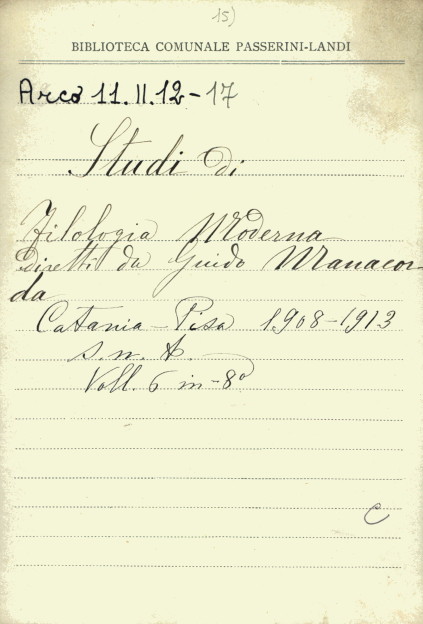 15)
BIBLIOTECA COMUNALE PASSERINI-LANDI
Arco 11. II. 12 - 17
Studi di
Filologia Moderna
diretti da Guido Manacor
da
Catania - Pisa 1908-1913
s. n. t.
Voll. 6 in-8º
C